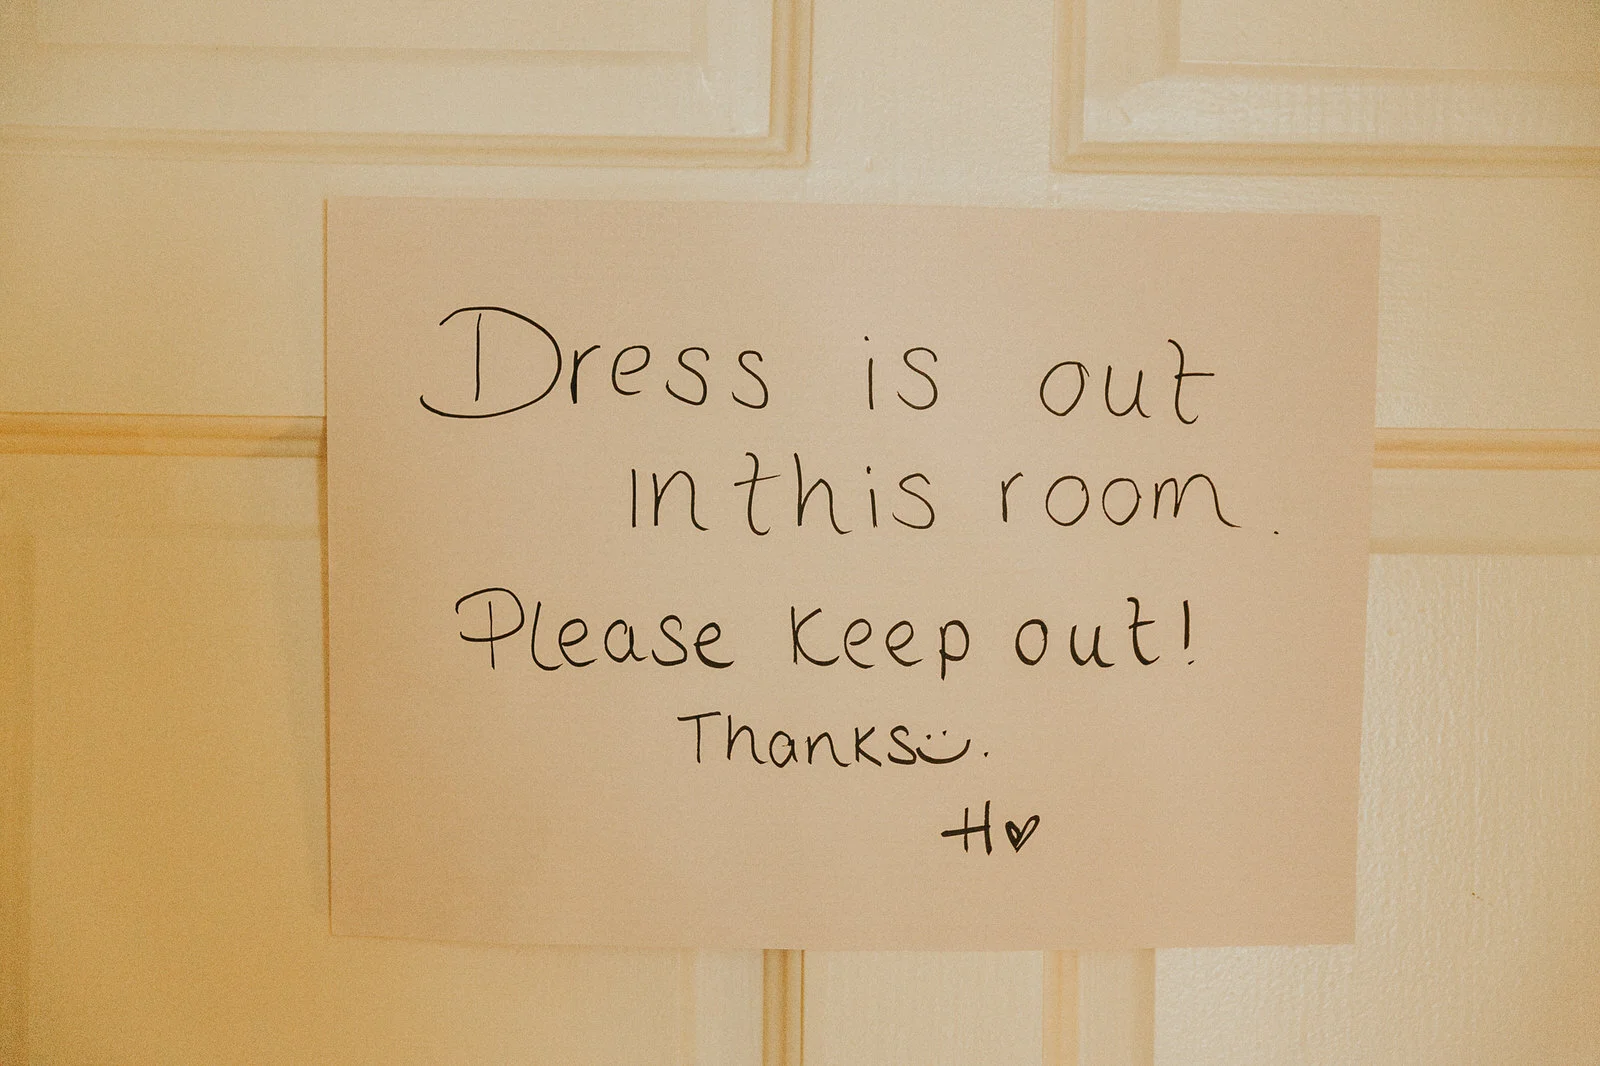 Dress is out
in this room.
Please keep out!
Thanks ü.
H♥